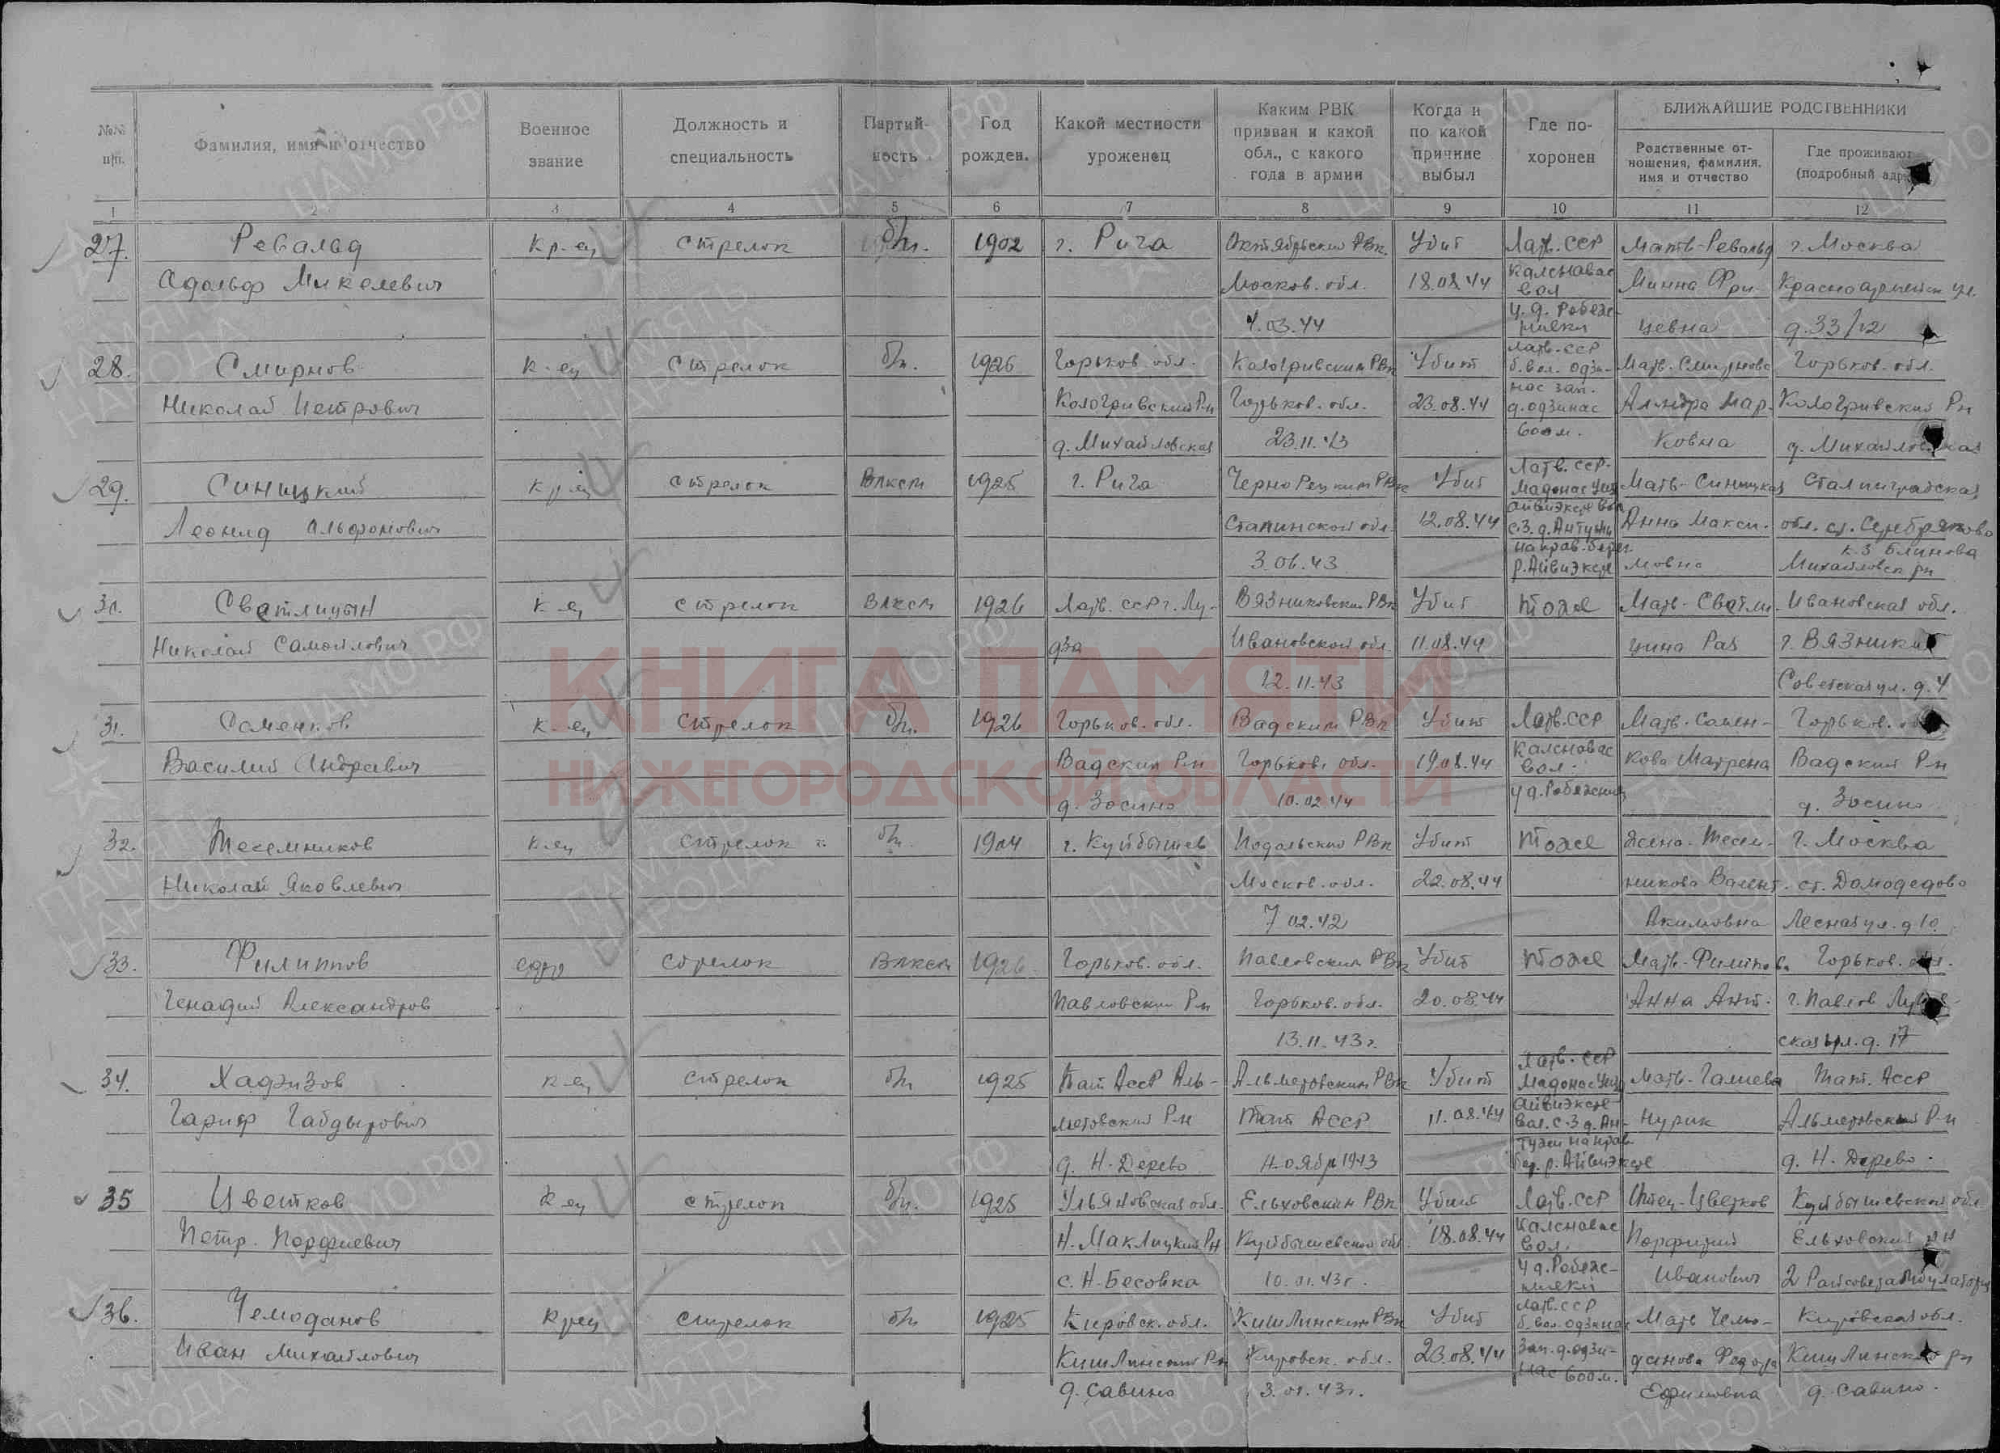 №№ п/п.
Фамилия, имя и отчество
Военное звание
Должность и специальность
Партийность
Год рожден.
Какой местности уроженец
Каким РВК призван и какой обл., с какого года в армии
Когда и по какой причине выбыл
Где похоронен
БЛИЖАЙШИЕ РОДСТВЕННИКИ
Родственные отношения, фамилия, имя и отчество
Где проживают (подробный адр
1 2 3 4 5 6 7 8 9 10 11 12
27. Ревальд кр-ец стрелок б/п. 1902 г. Рига Октябрьским РВк. Убит Латв. ССР Мать-Ревальд г. Москва
Адольф Микелевич Москов. обл. 18.08.44 Калснавас вол. Минна Фри- Красноармейск ул.
4.03.44 у д. Робеж- ниеки цевна д. 33/12
28. Смирнов к-ец стрелок б/п. 1926 Горьков. обл. Кологривским РВк Убит Латв. ССР Мать. Смирнова Горьков. обл.
Николай Петрович Кологривский Рн Горьков. обл. 23.08.44 д. Одзинас Мар- Кологривский Рн
д. Михайловская 23.11.43 600 м. ковна д. Михайловская
29. Синицкий кр-ец стрелок Влксм 1925 г. Рига Убит Латв. ССР. Мать-Синицкая Сталинградская
Леонид Альфонович Сталинской обл. 12.08.44 Анна Макси- обл. ст. Серебряково
3.06.43 р. Айвиэксте мовна Михайловск рн
30. Светлицын к-ец стрелок Влксм 1926 Латв. ССР г. Лу- Вязниковским РВк Убит Тоже Мать-Светли- Ивановская обл.
Николай Самойлович дза Ивановской обл. 11.08.44 цина Рая г. Вязники
12.11.43 Советская ул. д. 4
31. Саменков к-ец стрелок б/п. 1926 Горьков. обл. Вадским РВк Убит Латв. ССР Мать-Самен- Горьков. обл.
Василий Андреевич Вадский Рн Горьков. обл. 19.08.44 Калснавас вол. кова Матрена Вадский Рн
д. Зосино 10.02.44 у д. Робежниек д. Зосино
32. Тесемников к-ец стрелок б/п. 1904 г. Куйбышев Подольским РВк Убит Тоже Жена-Тесем- г. Москва
Николай Яковлевич Москов. обл. 22.08.44 никова Валент. ст. Домодедово
7 02.42 Акимовна Лесная ул. д 10
33. Филиппов стрелок Влксм 1926 Горьков. обл. Павловским РВк Убит Тоже Мать-Филипова Горьков. обл.
Генадий Александров Павловский Рн Горьков. обл. 20.08.44 Анна Ант. г. Павлов
13.11.43г. ская ул. д. 17
34. Хафизов к-ец стрелок б/п 1925 Тат АССР Аль- Альметовским РВк Убит Латв. ССР Мать-Галиева Тат. АССР
Гариф Габдырович метовский Рн Тат АССР 11.08.44 Айвиэксте Нурик Альметовский Рн
д. Н-Дерево Ноябр 1943 бер. р. Айвиэксте д. Н. Дерево.
35 Цветков к-ец стрелок б/п. 1925 Ульяновская обл. Елховским РВк Убит Латв. ССР Отец-Цветков Куйбышевской обл
Петр. Порфиевич Куйбышевской обл 18.08.44 Калснавас вол. Порфирий Елховский рн
с. Н-Бесовка 10.01.43г. у д. Робеж- ниеки Иванович
36. Чемоданов кр-ец стрелок б/п 1925 Кировск. обл. РВк Убит Латв. ССР Мать Чемо- Кировская обл.
Иван Михайлович Кировск. обл. 23.08.44 зап. д. Одзи- нас 600 м. данова Федора
д. Савино 3.01.43г. Ефимовна д. Савино.
КНИГА ПАМЯТИ
НИЖЕГОРОДСКОЙ ОБЛАСТИ
ПАМЯТЬ НАРОДА
ЦАМО.РФ